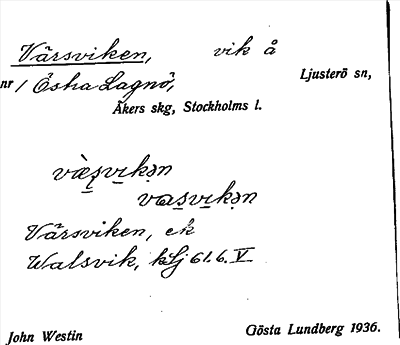 Värsviken, vik å
nr 1 Östra Lagnö, Ljusterö sn,
Åkers skg, Stockholms l.
væ̀ṣvikən
vaṣvikən
Värsviken, ek
Walsvik, kLj 61.6.V
John Westin Gösta Lundberg 1936.